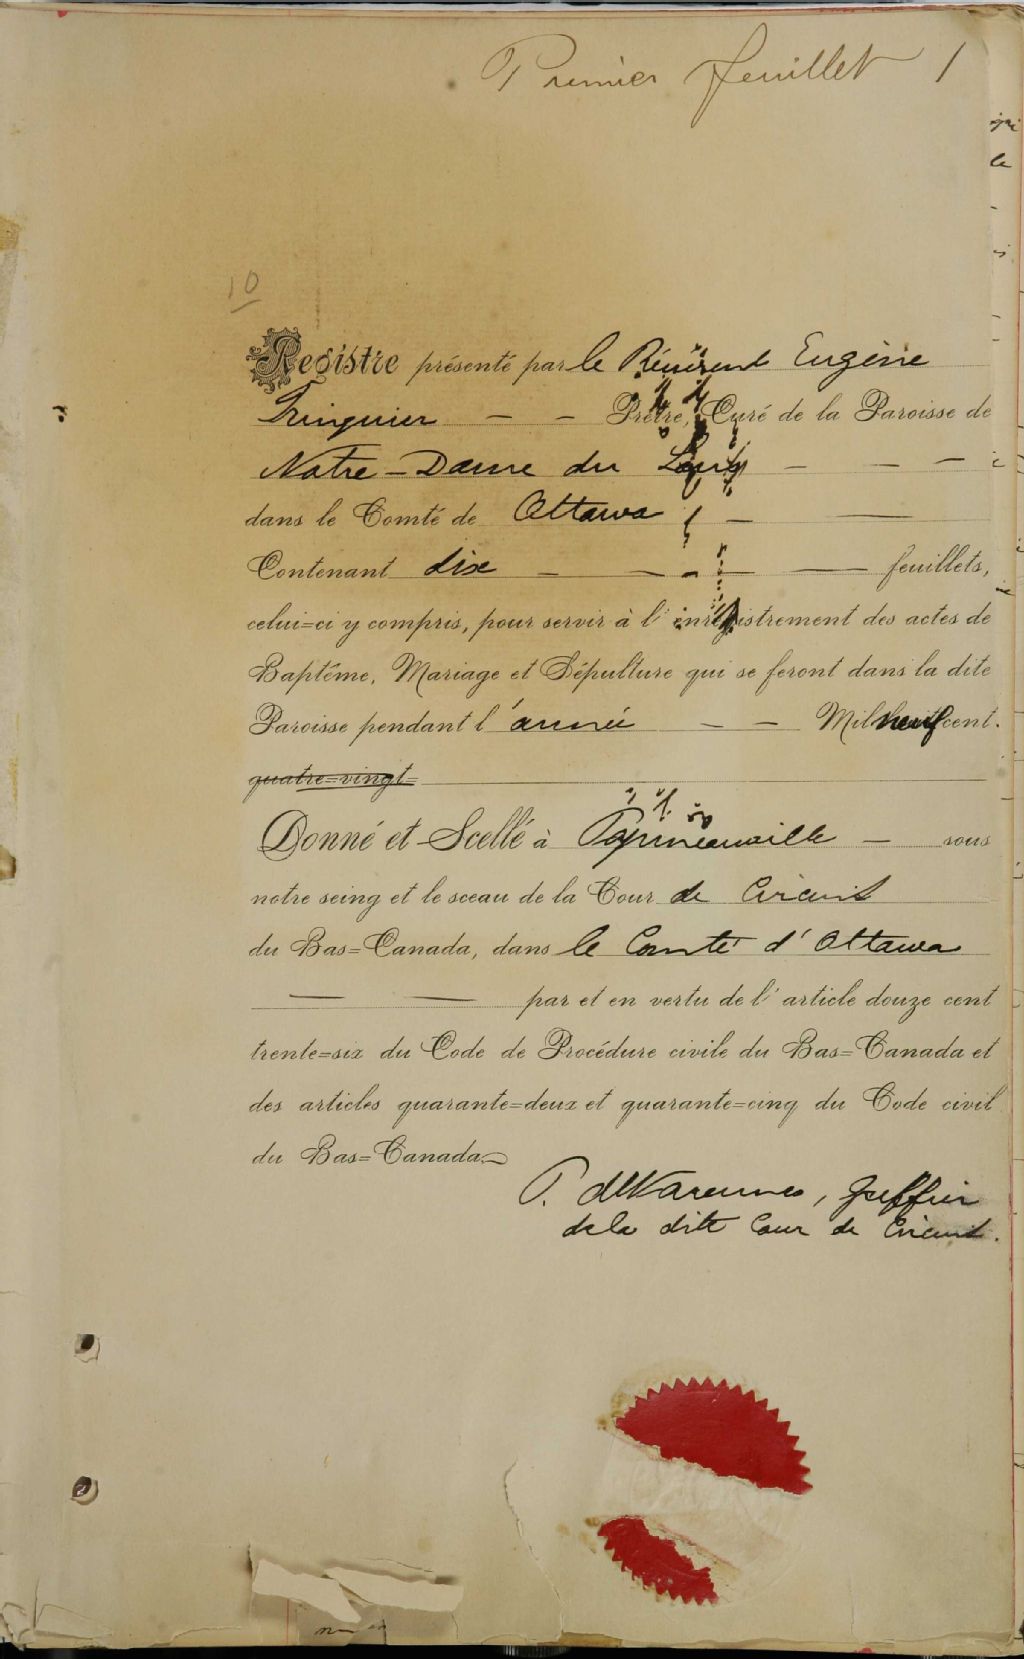 Premier feuillet 1
10
Registre présenté par le Révérend Eugène
Trinquier — — Prêtre, Curé de la Paroisse de
Notre-Dame du Laus — — —
dans le Comté de Ottawa — —
Contenant dix — — — — feuillets,
celui=ci y compris, pour servir à l'enregistrement des actes de
Baptême, Mariage et Sépulture qui se feront dans la dite
Paroisse pendant l'année — — Mil neuf cent.
quatre=vingt=
Donné et Scellé à Papineauville — sous
notre seing et le sceau de la Cour de Circuit
du Bas=Canada, dans le Comté d'Ottawa
— — par et en vertu de l'article douze cent
trente=six du Code de Procédure civile du Bas=Canada et
des articles quarante=deux et quarante=cinq du Code civil
du Bas=Canada.
Greffier
de la dite Cour de Circuit.